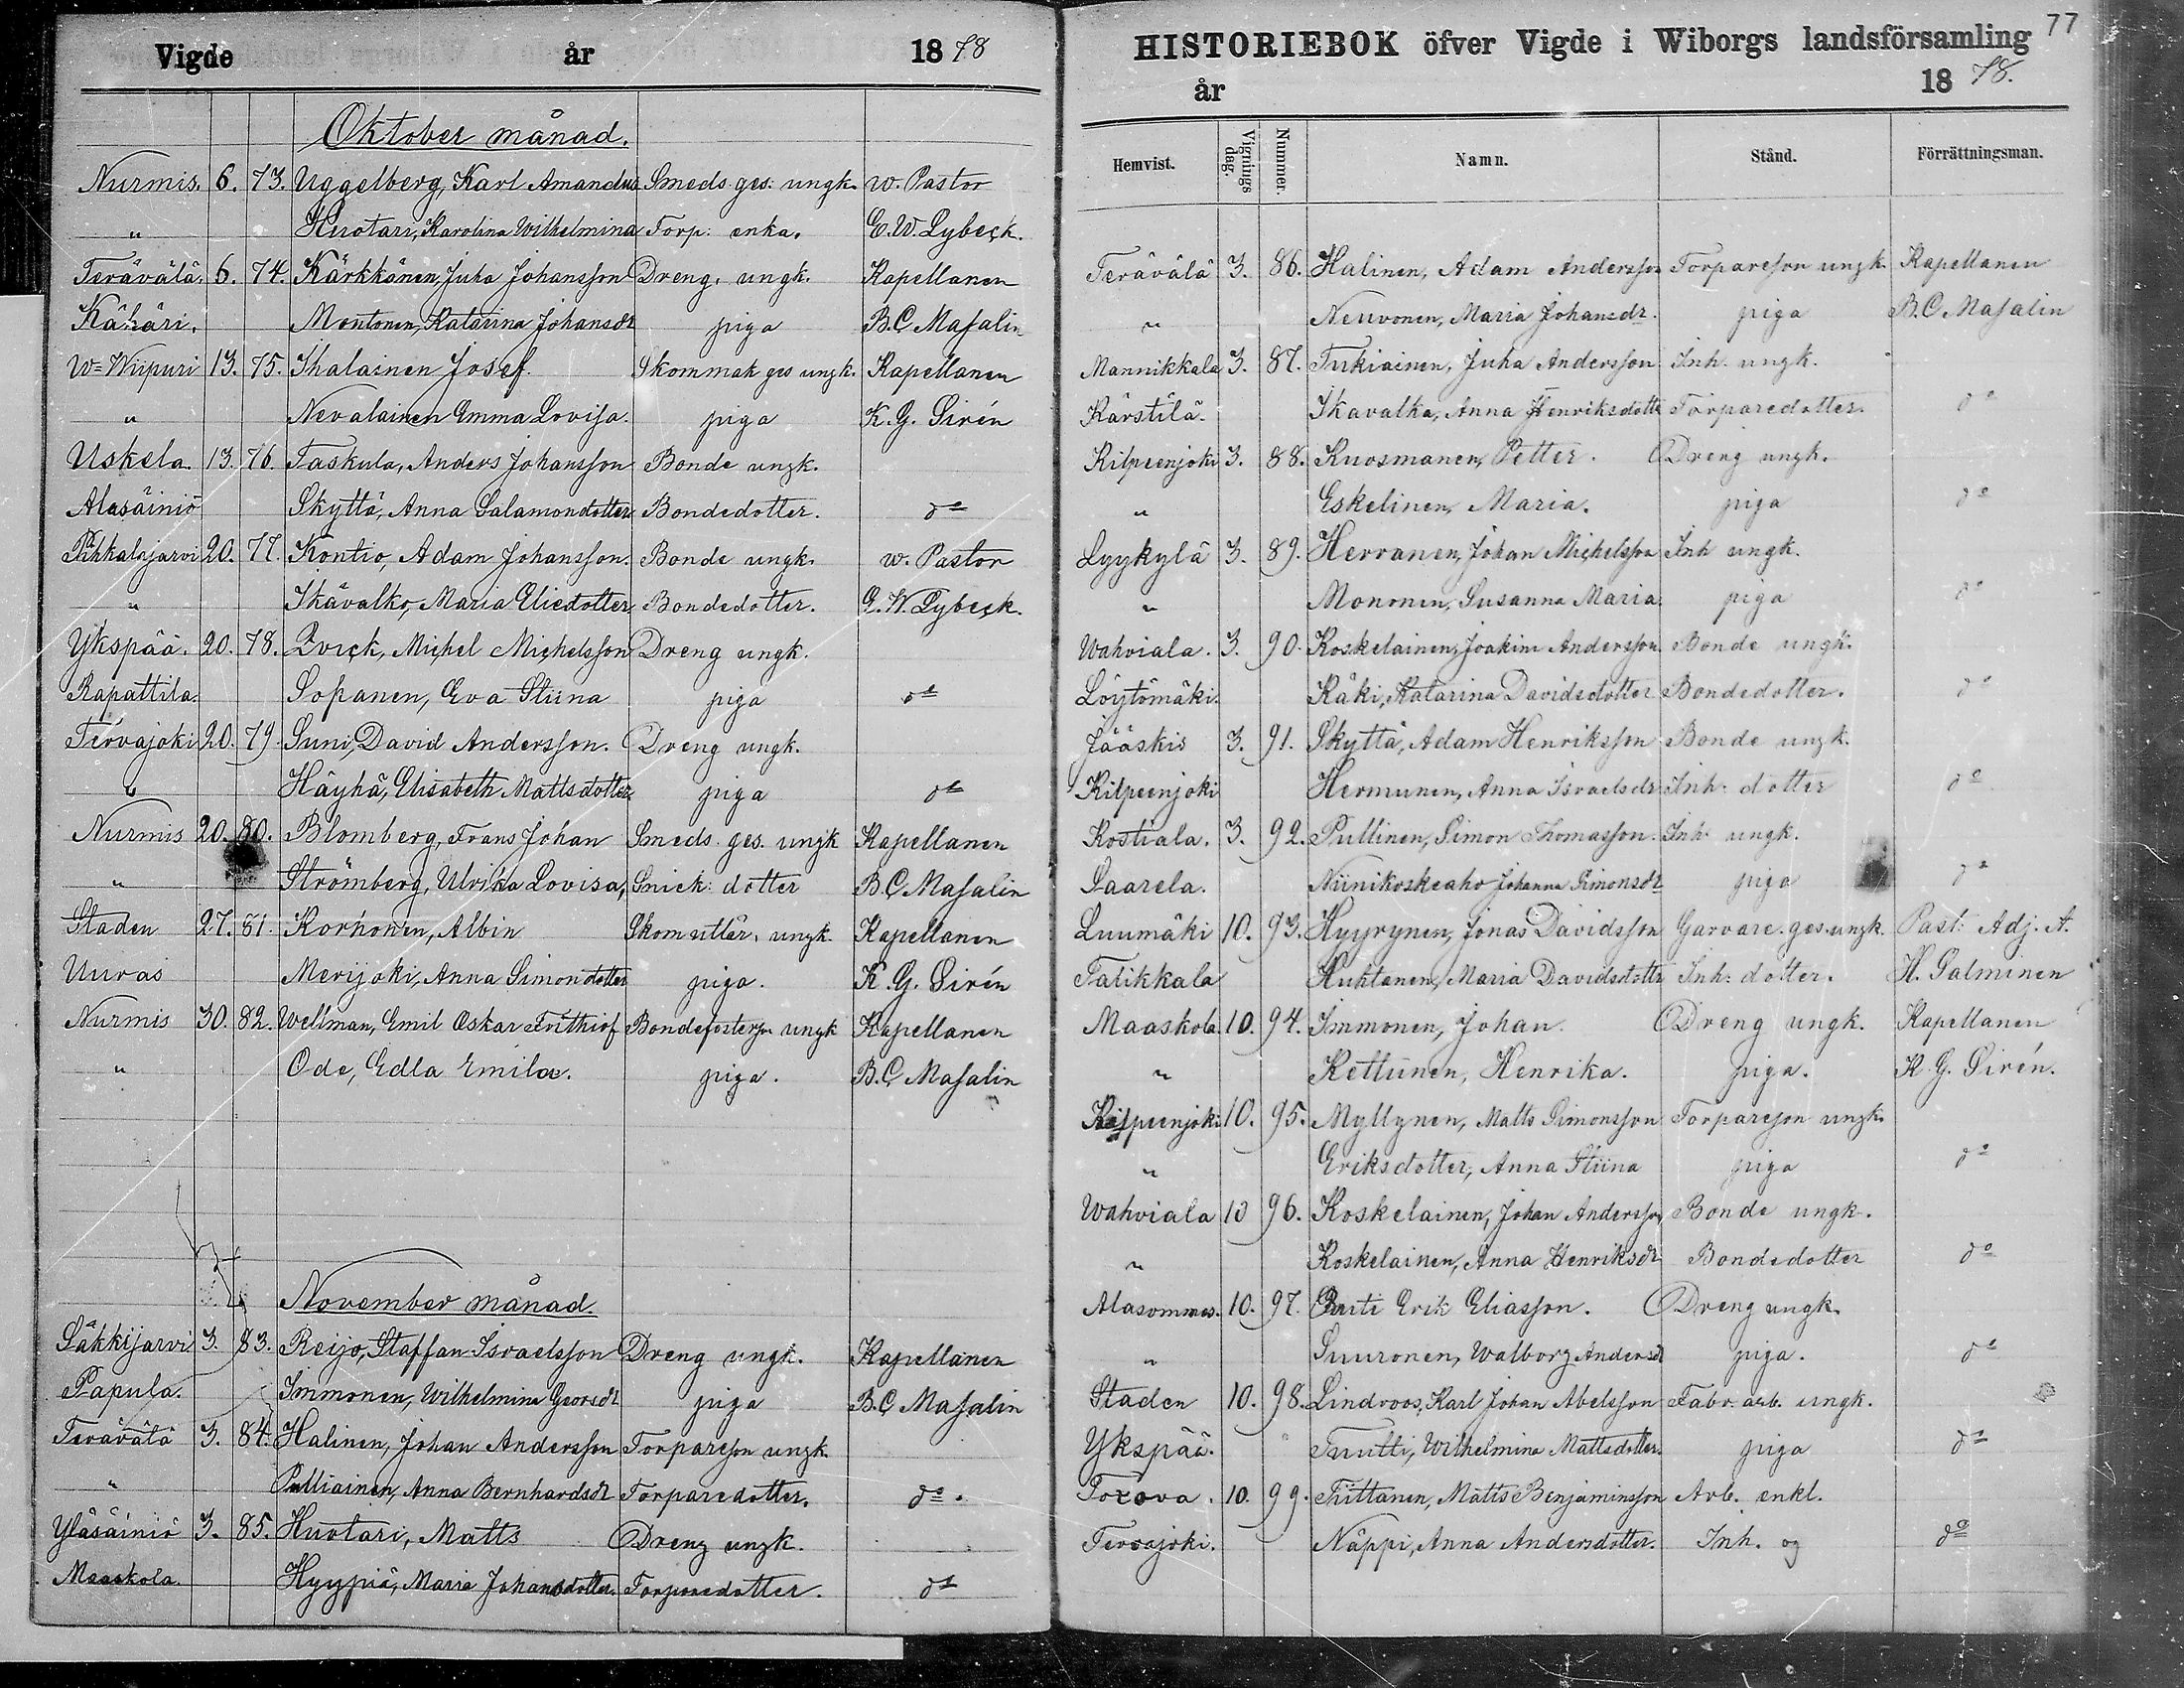 Vigde år 1878
Oktober månad.
Nurmis. 6. 73. Uggelberg, Karl Amandus Smeds ges. ungk. w. Pastor
" Huotari, Karolina Wilhelmina Torp: enka. E.W. Lybeck.
Terävälä. 6. 74. Kärkkönen, Juho Johansson Dreng. ungk. Kapellanen
Kähäri. Montonen, Katarina Johansdr piga B.C. Masalin
W=Wiipuri 13. 75. Ihalainen Josef. Skommak ges ungk. Kapellanen
" Nevalainen Emma Lovisa. piga K.G. Sirén
Uskela. 13. 76. Taskula, Anders Johansson Bonde ungk.
Alasäiniö Skyttä, Anna Salamondotter Bondedotter. do
Pihkalajarvi 20. 77. Kontio, Adam Johansson. Bonde ungk. w. Pastor
" Ikävalko, Maria Eliedotter Bondedotter. E.W. Lybeck.
Ykspää. 20. 78. Qvick, Michel Michelsson Dreng ungk.
Rapattila. Sopanen, Eva Stiina piga do
Tervajoki 20. 79. Suni, David Andersson. Dreng ungk.
" Häyhä, Elisabeth Mattsdotter piga do
Nurmis 20. 80. Blomberg, Frans Johan Smeds ges. ungk Kapellanen
" Strömberg, Ulrika Lovisa, Snick: dotter B.C. Masalin
Staden 27. 81. Korhonen, Albin ungk. Kapellanen
Uuras Merijoki, Anna Simondotter piga. K.G. Sirén
Nurmis 30. 82. Wellman, Emil Oskar Frithiof Bondefosterson ungk Kapellanen
" Ode, Edla Emilia. piga. B.C. Masalin
November månad.
Säkkijarvi 3. 83. Reijo, Staffan Israelsson Dreng ungk. Kapellanen
Papula. Immonen, Wilhelmina Georsdr piga B.C. Masalin
Terävälä 3. 84. Halinen, Johan Andersson Torpareson ungk.
" Pulliainen, Anna Bernhardsdr Torparedotter. do.
Yläsäiniö 3. 85. Huotari, Matts Dreng ungk.
Maaskola. Hyypiä, Maria Johansdotter. Torparedotter. do
77
HISTORIEBOK öfver Vigde i Wiborgs landsförsamling
år 1878.
Hemvist. Vignings dag. Nummer. Namn. Stånd. Förrättningsman.
Terävälä 3. 86. Halinen, Adam Andersson Torpareson ungk. Kapellanen
" Neuvonen, Maria Johansdr. piga B.C. Masalin
Mannikkala 3. 87. Tukiainen, Juha Andersson Inh. ungk.
Kärstilä. Ikavalka, Anna Henriksdottr Torparedotter. do
Kilpeenjoki 3. 88. Kuosmanen, Petter. Dreng ungk.
" Eskelinen, Maria. piga do
Lyykylä 3. 89. Herranen, Johan Michelsson Inh ungk.
" Mononen, Susanna Maria. piga do
Wahviala. 3. 90. Koskelainen, Joakim Andersson. Bonde ungk.
Löytömäki. Käki, Katarina Davidsdotter Bondedotter. do
Jääskis 3. 91. Skyttä, Adam Henriksson Bonde ungk.
Kilpeenjoki Hermunen, Anna Israelsdr Inh: dotter do
Kostiala. 3. 92. Pullinen, Simon Thomasson. Inh: ungk.
Saarela. Niinikoskeaho Johanna Simonsdr piga do
Luumäki 10. 93. Hyyrynen, Jonas Davidsson Garvare. ges. ungk. Past: Adj. A.
Tatikkala Huhtanen, Maria Davidsdottr Inh: dotter. H. Salminen
Maaskola 10. 94. Immonen, Johan. Dreng ungk. Kapellanen
" Kettunen, Henrika. piga. K.G. Sirén.
Kilpeenjoki 10. 95. Myllynen, Matts Simonsson Torpareson ungk.
" Eriksdotter, Anna Stiina piga do
Wahviala 10 96. Koskelainen, Johan Andersson, Bonde ungk.
" Koskelainen, Anna Henriksdr Bondedotter do
Alasommes. 10. 97. Erik Eliasson. Dreng ungk.
" Suuronen, Walborg Andersdr piga. do
Staden 10. 98. Lindroos, Karl Johan Abelsson Fabr. arb. ungk.
Ykspää. " Truutti, Wilhelmina Mattsdotter. piga do
10. 99. Tiittanen, Matts Benjaminsson Arb. enkl.
Tervajoki. Näppi, Anna Andersdotter. Inh. og do